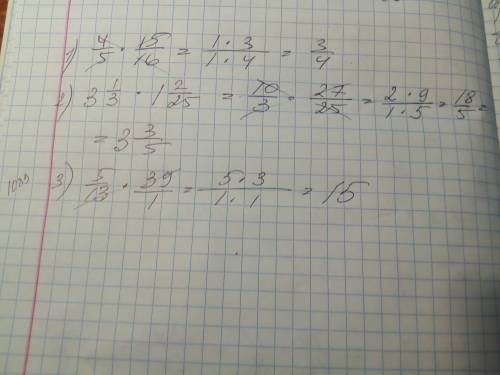 1) 4/5 · 15/16 = 1·3/1·4 = 3/4
2) 3 1/3 · 1 2/25 = 10/3 · 27/25 = 2·9/1·5 = 18/5 =
= 3 3/5
3) 5/13 · 39/1 = 5·3/1·1 = 15